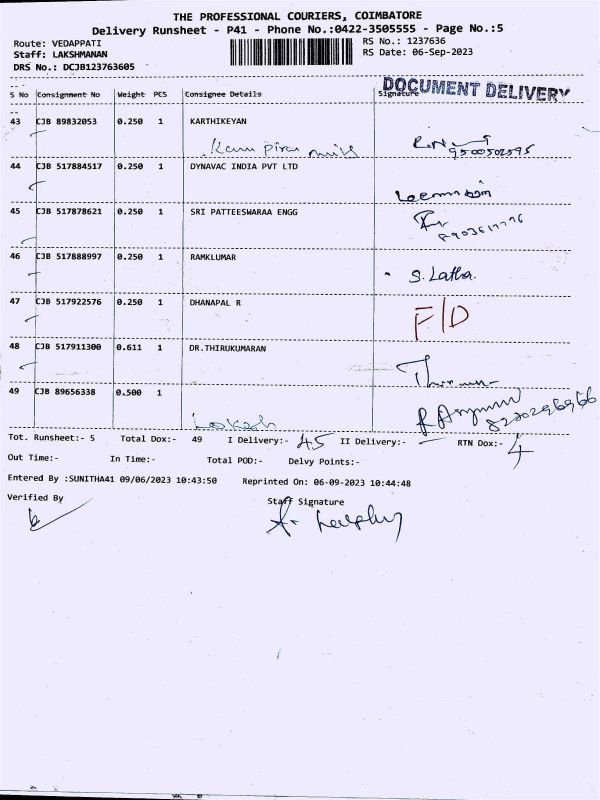 THE PROFESSIONAL COURIERS, COIMBATORE
Delivery Runsheet - P41 - Phone No.:0422-3505555 - Page No.:5
Route: VEDAPPATI
RS No.: 1237636
Staff: LAKSHMANAN
RS Date: 06-Sep-2023
DRS No.: DCJB123763605
DOCUMENT DELIVERY
S No Consignment No Weight PCS Consignee Details Signature
43 CJB 89832053 0.250 1 KARTHIKEYAN
9500502595
44 CJB 517884517 0.250 1 DYNAVAC INDIA PVT LTD
45 CJB 517878621 0.250 1 SRI PATTEESWARAA ENGG
46 CJB 517888997 0.250 1 RAMKLUMAR
S. Latha.
47 CJB 517922576 0.250 1 DHANAPAL R
F/D
48 CJB 517911300 0.611 1 DR.THIRUKUMARAN
49 CJB 89656338 0.500 1
Lokesh
Tot. Runsheet:- 5 Total Dox:- 49 I Delivery:- 45 II Delivery:- RTN Dox:- 4
Out Time:- In Time:- Total POD:- Delvy Points:-
Entered By :SUNITHA41 09/06/2023 10:43:50 Reprinted On: 06-09-2023 10:44:48
Verified By Staff Signature